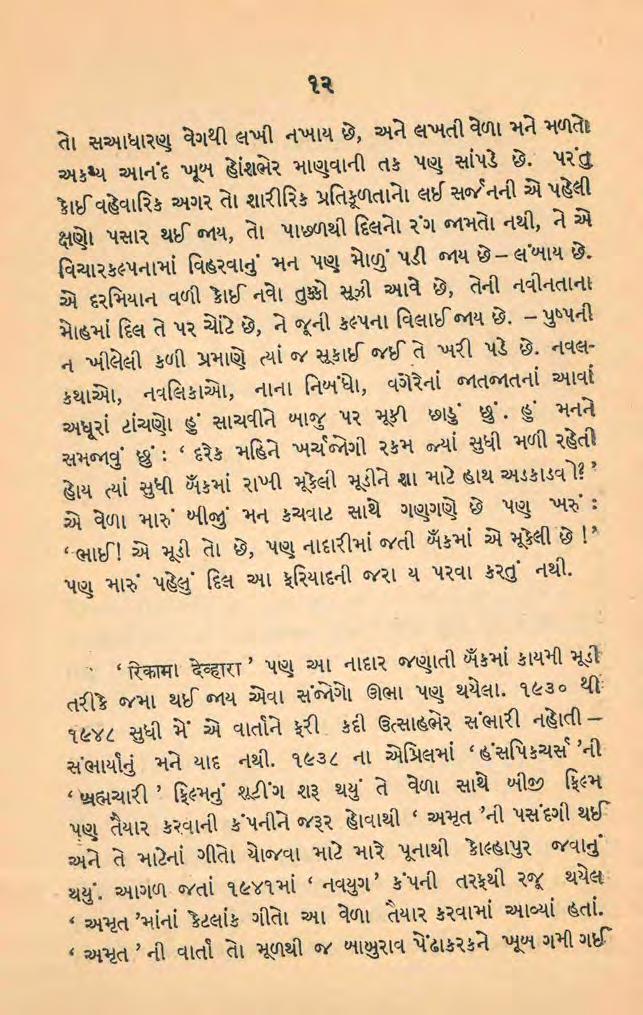 ૧૨
તો સઆધારણ વેગથી લખી નખાય છે, અને લખતી વેળા મને મળતો
અકથ્ય આનંદ ખૂબ હોંશભેર માણવાની તક પણ સાંપડે છે. પરંતુ
કોઈ વહેવારિક અગર તો શારીરિક પ્રતિકૂળતાનો લઈ સર્જનની એ પહેલી
ક્ષણો પસાર થઈ જાય, તો પાછળથી દિલનો રંગ જામતો નથી, ને એ
વિચારકલ્પનામાં વિહરવાનું મન પણ મોળું પડી જાય છે – લંબાય છે.
એ દરમિયાન વળી કોઈ નવો તુક્કો સૂઝી આવે છે, તેની નવીનતાના
મોહમાં દિલ તે પર ચોંટે છે, ને જૂની કલ્પના વિલાઈ જાય છે. – પુષ્પની
ન ખીલેલી કળી પ્રમાણે ત્યાં જ સૂકાઈ જઈ તે ખરી પડે છે. નવલ-
કથાઓ, નવલિકાઓ, નાના નિબંધો, વગેરેનાં જાતજાતનાં આવાં
અધૂરાં ટાંચણો હું સાચવીને બાજુ પર મૂકી છાડું છું. હું મનને
સમજાવું છું : ‘ દરેક મહિને ખર્ચજોગી રકમ જ્યાં સુધી મળી રહેતી
હોય ત્યાં સુધી બૅંકમાં રાખી મૂકેલી મૂડીને શા માટે હાથ અડકાડવો?’
એ વેળા મારું બીજું મન કચવાટ સાથે ગણગણે છે પણ ખરું :
‘ ભાઈ! એ મૂડી તો છે, પણ નાદારીમાં જતી બૅંકમાં એ મૂકેલી છે !’
પણ મારું પહેલું દિલ આ ફરિયાદની જરા ય પરવા કરતું નથી.
‘ रिकामा देव्हारा ’ પણ આ નાદાર જણાતી બૅંકમાં કાયમી મૂડી
તરીકે જમા થઈ જાય એવા સંજોગો ઊભા પણ થયેલા. ૧૯૩૦ થી
૧૯૪૮ સુધી મેં એ વાર્તાને ફરી કદી ઉત્સાહભેર સંભારી નહોતી –
સંભાર્યાનું મને યાદ નથી. ૧૯૩૮ ના એપ્રિલમાં ‘ હંસપિકચર્સ ’ની
‘ બ્રહ્મચારી ’ ફિલ્મનું શૂટીંગ શરૂ થયું તે વેળા સાથે બીજી ફિલ્મ
પણ તૈયાર કરવાની કંપનીને જરૂર હોવાથી ‘ અમૃત ’ની પસંદગી થઈ
અને તે માટેનાં ગીતો યોજવા માટે મારે પૂનાથી કોલ્હાપુર જવાનું
થયું. આગળ જતાં ૧૯૪૧માં ‘ નવયુગ ’ કંપની તરફથી રજૂ થયેલ
‘ અમૃત ’માંનાં કેટલાંક ગીતો આ વેળા તૈયાર કરવામાં આવ્યાં હતાં.
‘ અમૃત ’ ની વાર્તા તો મૂળથી જ બાબુરાવ પેંઢારકરને ખૂબ ગમી ગઈ